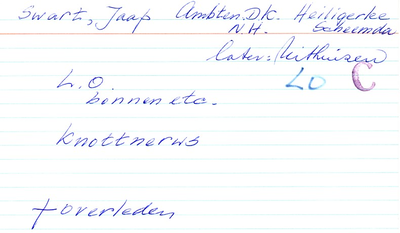 Swart, Jaap Ambten. DK. Heiligerlee
N.H. Scheemda
later: Uithuizen
L.O. LO C
bonnen etc.
Knottnerus
† overleden